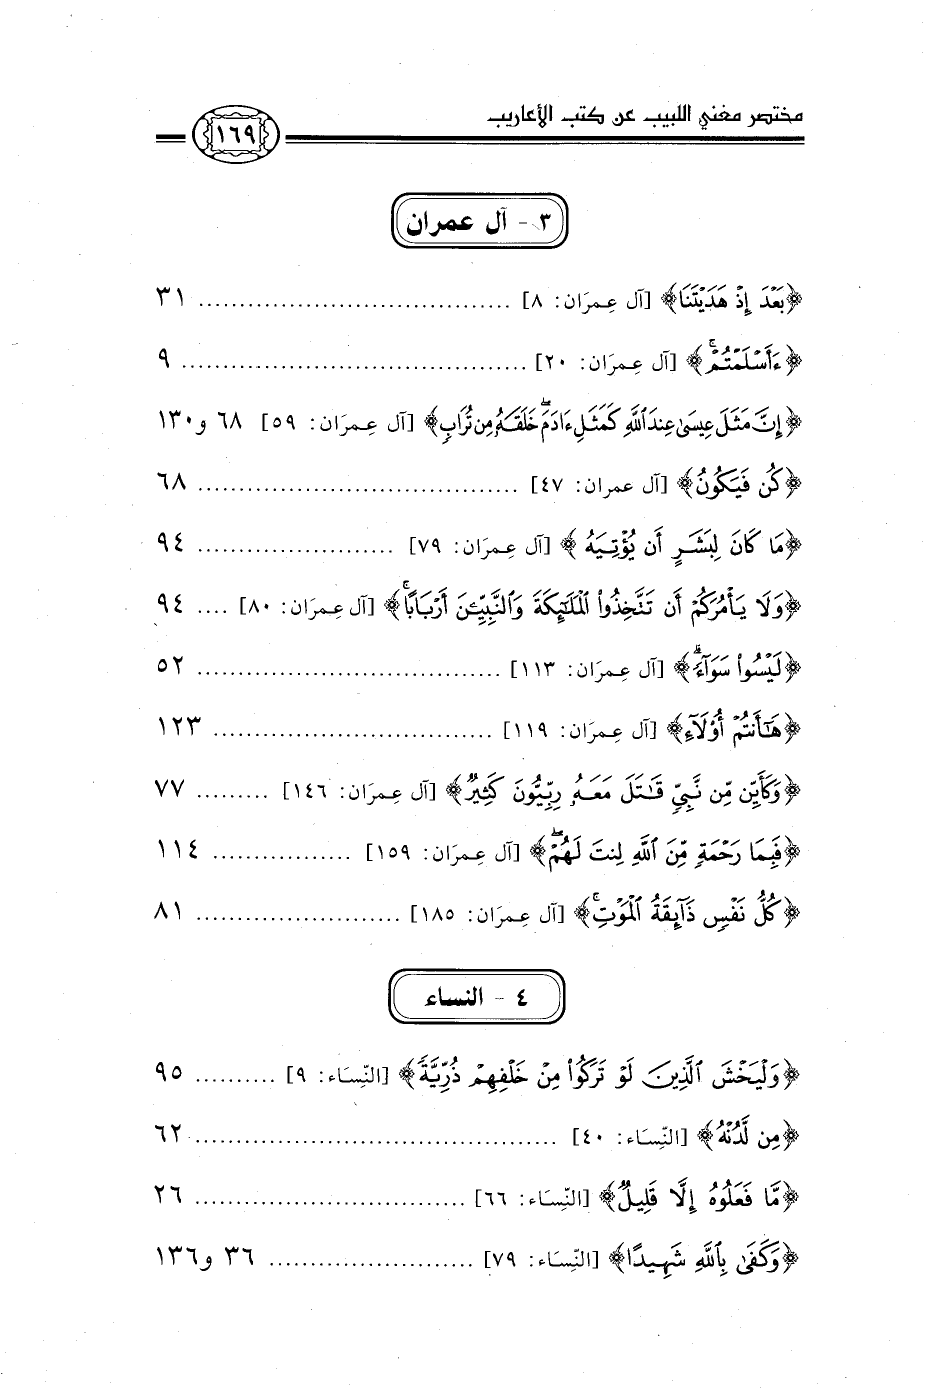 مختصر مغني اللبيب عن كتب الأعاريب
١٦٩
٣ - آل عمران
﴿بَعْدَ إِذْ هَدَيْتَنَا﴾ [آل عِمرَان: ٨] ..................................... ٣١
﴿ءَأَسْلَمْتُمْۚ﴾ [آل عِمرَان: ٢٠] ......................................... ٩
﴿إِنَّ مَثَلَ عِيسَىٰ عِندَ ٱللَّهِ كَمَثَلِ ءَادَمَۖ خَلَقَهُۥ مِن تُرَابٍ﴾ [آل عِمرَان: ٥٩] ٦٨ و١٣٠
﴿كُن فَيَكُونُ﴾ [آل عمران: ٤٧] ...................................... ٦٨
﴿مَا كَانَ لِبَشَرٍ أَن يُؤْتِيَهُ﴾ [آل عِمرَان: ٧٩] ........................ ٩٤
﴿وَلَا يَأْمُرَكُمْ أَن تَتَّخِذُوا۟ ٱلْمَلَـٰٓئِكَةَ وَٱلنَّبِيِّـۧنَ أَرْبَابًاۚ﴾ [آل عِمرَان: ٨٠] .... ٩٤
﴿لَيْسُوا۟ سَوَآءًۗ﴾ [آل عِمرَان: ١١٣] .................................... ٥٢
﴿هَـٰٓأَنتُمْ أُو۟لَآءِ﴾ [آل عِمرَان: ١١٩] ................................. ١٢٣
﴿وَكَأَيِّن مِّن نَّبِىٍّ قَـٰتَلَ مَعَهُۥ رِبِّيُّونَ كَثِيرٌ﴾ [آل عِمرَان: ١٤٦] ......... ٧٧
﴿فَبِمَا رَحْمَةٍ مِّنَ ٱللَّهِ لِنتَ لَهُمْۖ﴾ [آل عِمرَان: ١٥٩] ................. ١١٤
﴿كُلُّ نَفْسٍ ذَآئِقَةُ ٱلْمَوْتِۗ﴾ [آل عِمرَان: ١٨٥] ......................... ٨١
٤ - النساء
﴿وَلْيَخْشَ ٱلَّذِينَ لَوْ تَرَكُوا۟ مِنْ خَلْفِهِمْ ذُرِّيَّةً﴾ [النِّسَاء: ٩] .......... ٩٥
﴿مِن لَّدُنْهُ﴾ [النِّسَاء: ٤٠] ............................................ ٦٢
﴿مَّا فَعَلُوهُ إِلَّا قَلِيلٌ﴾ [النِّسَاء: ٦٦] ................................. ٢٦
﴿وَكَفَىٰ بِٱللَّهِ شَهِيدًا﴾ [النِّسَاء: ٧٩] ......................... ٣٦ و١٣٦